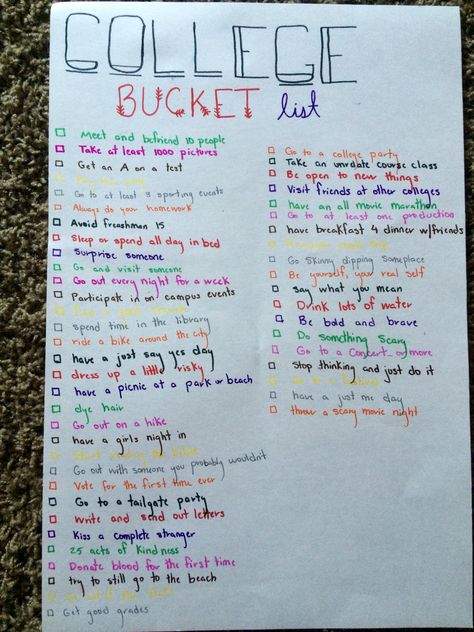 COLLEGE
BUCKET list
Meet and befriend 10 people
Take at least 1000 pictures
Get an A on a test
Go to at least 3 sporting events
Always do your homework
Avoid freashman 15
Sleep or spend all day in bed
Surprise someone
Go and visit someone
Go out every night for a week
Participate in on campus events
spend time in the library
ride a bike around the city
have a just say yes day
dress up a little risky
have a picnic at a park or beach
dye hair
Go out on a hike
have a girls night in
Start reading the bible
Go out with someone you probably wouldn't
Vote for the first time ever
Go to a tailgate party
Write and send out letters
Kiss a complete stranger
25 acts of Kindness
Donate blood for the first time
try to still go to the beach
Get good grades
Go to a college party
Take an unrdate course class
Be open to new things
Visit friends at other colleges
have an all movie marathon
Go to at least one production
have breakfast 4 dinner w/friends
Go skinny dipping someplace
Be yourself, your real self
Say what you mean
Drink lots of water
Be bold and brave
Do something scary
Go to a concert or more
Stop thinking and just do it
have a just me day
throw a scary movie night